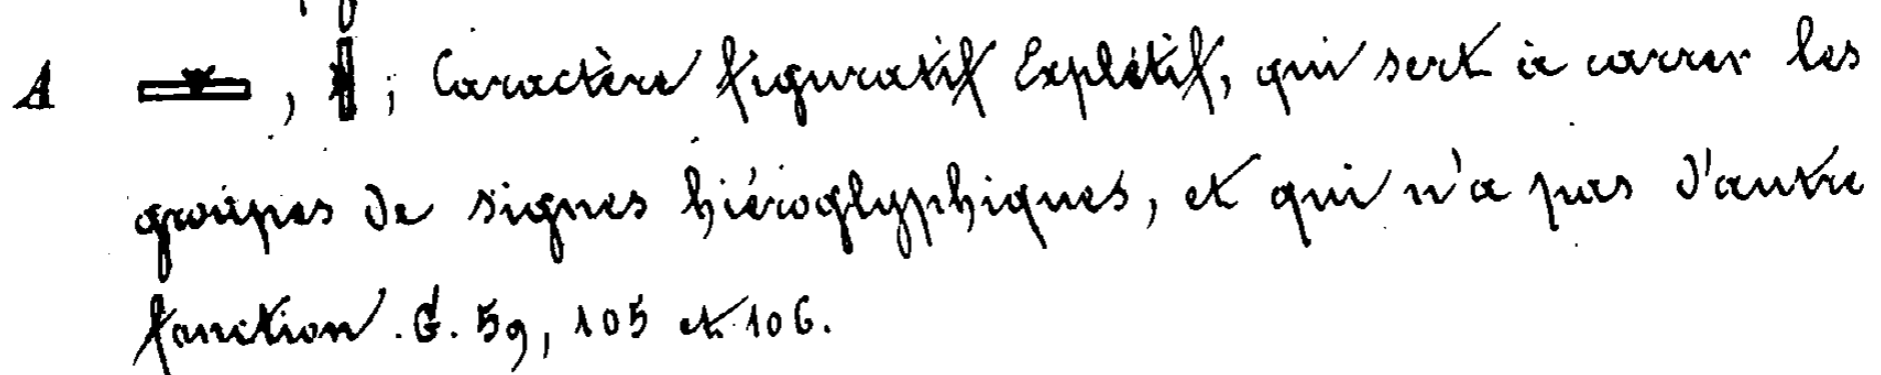 A , ; Caractère figuratif Explétif, qui sert à carrer les
groupes de signes hiéroglyphiques, et qui n'a pas d'autre
fonction. G. 59, 105 et 106.